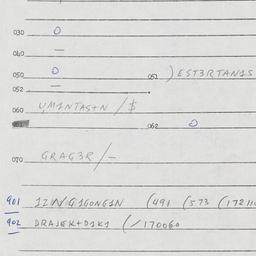 030 0
040 —
050 0 051 ) EST3RTAN1S
052 —
060 UM1NTAS+N / $
062 0
070 GRAG3R / -
901 1ZWG1GONG1N (491 (573 (17211
902 DRAJEK+D1K1 ( / 170060